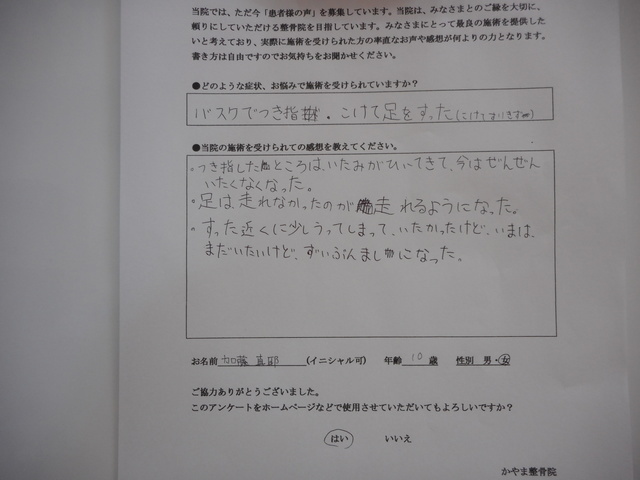 当院では、ただ今「患者様の声」を募集しています。当院は、みなさまとのご縁を大切に、
頼りにしていただける整骨院を目指しています。みなさまにとって最良の施術を提供した
いと考えており、実際に施術を受けられた方の率直なお声や感想が何よりの力となります。
書き方は自由ですのでお気持ちをお聞かせください。
●どのような症状、お悩みで施術を受けられていますか?
バスケでつき指 。こけて足をすった
●当院の施術を受けられての感想を教えてください。
・つき指したところは、いたみがひいてきて、今はぜんぜん
いたくなくなった。
・足は走れなかったのが走れるようになった。
・すった近くに少しうってしまって、いたかったけど、いまは、
まだいたいけど、ずいぶんましになった。
お名前 加藤 真耶 (イニシャル可) 年齢 10 歳 性別 男・女
ご協力ありがとうございました。
このアンケートをホームページなどで使用させていただいてもよろしいですか?
はい いいえ
かやま整骨院